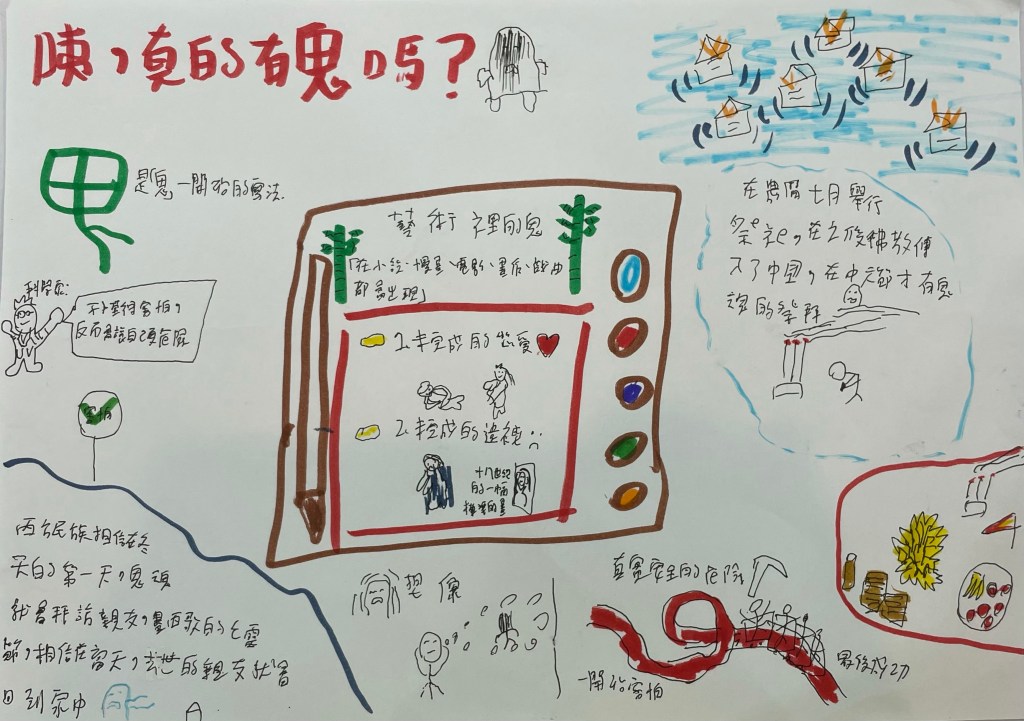 真的有鬼嗎?
是鬼一開始的
藝術裡的鬼
「在小說、漫畫、電影、畫作、戲曲
都會出現」
科學家:
不要得害怕,
反而會讓自己更危險
害怕
1.
的戀愛
2.
的遺憾
十八世紀
的一幅
在農曆七月舉行
祭祀。在之後佛教傳
入了中國,在中元節才有鬼
說的祭拜
西方民族相信在冬
天的第一天,鬼魂
就會拜訪親友,墨西哥的亡靈
節,相信在當天,去世的親友就會
回到家中
想像
真實安全的危險
一開始害怕
最後成功